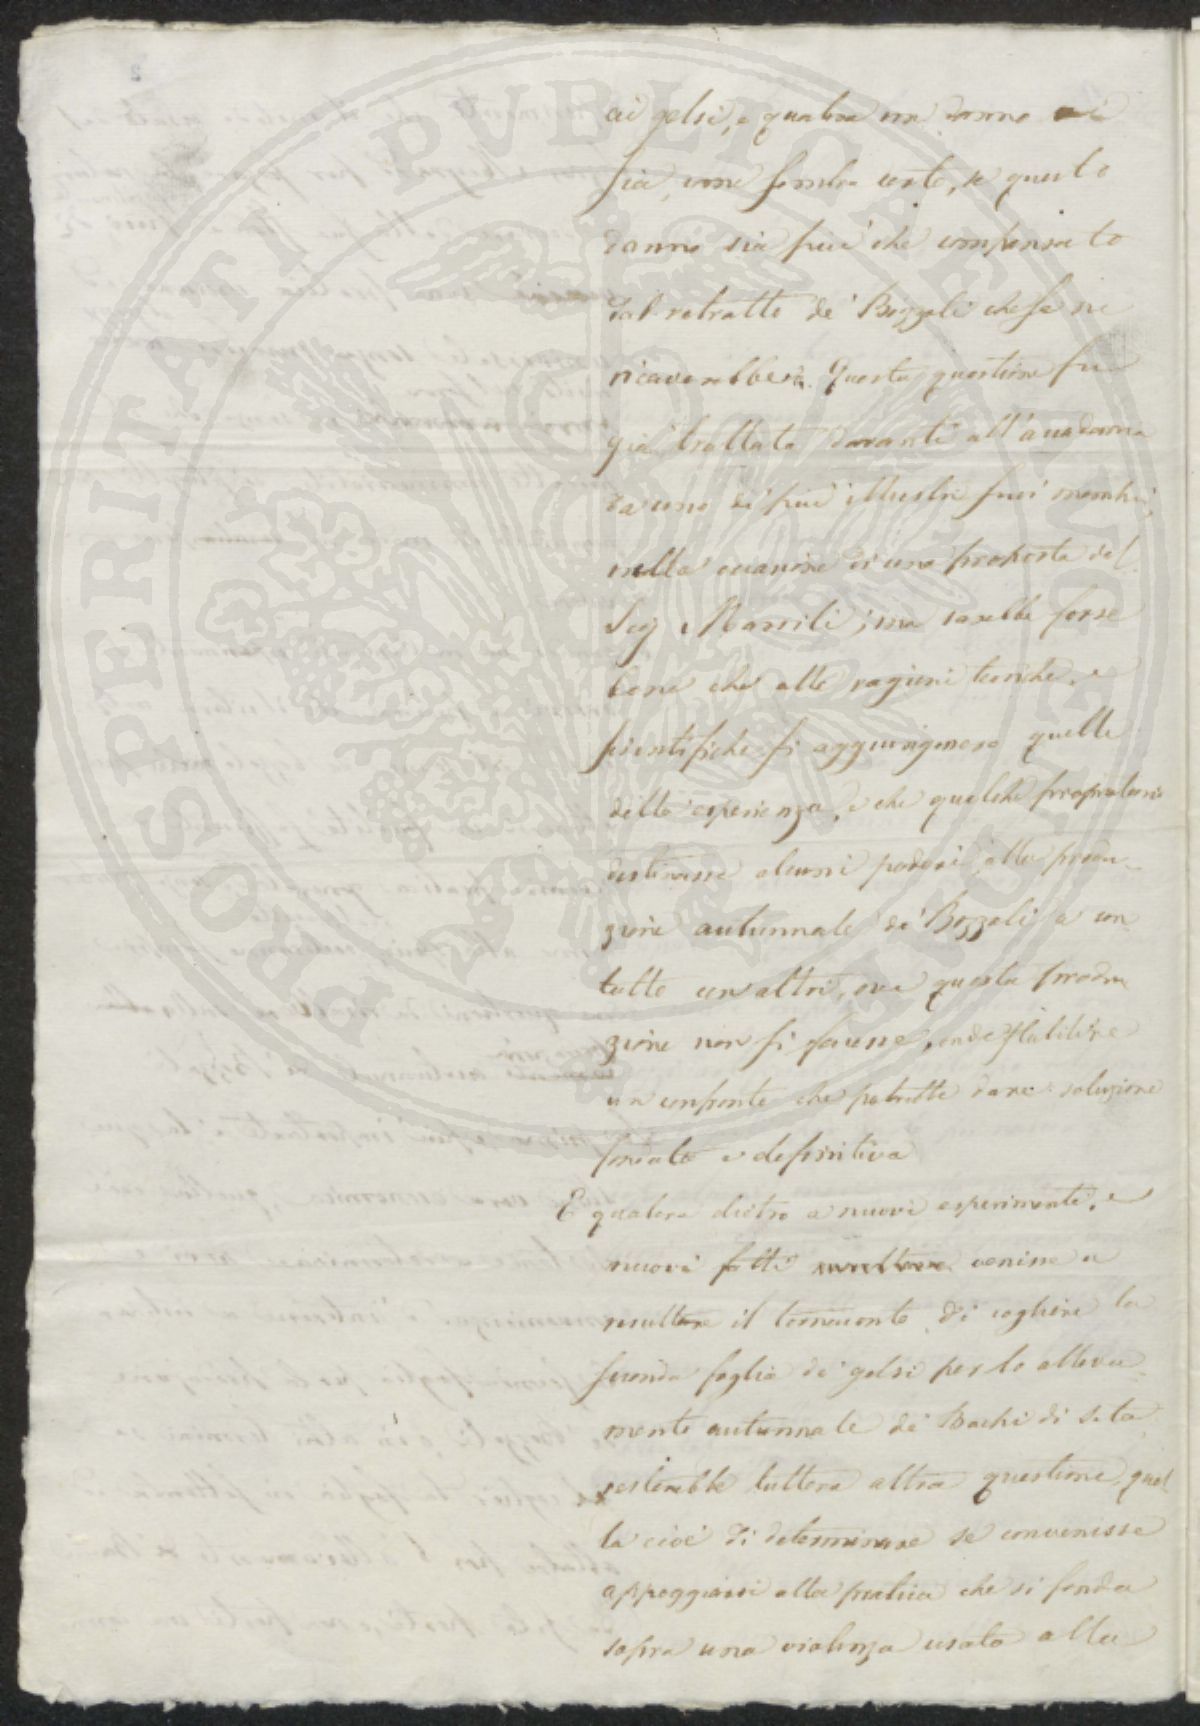 ai gelsi, e qualora un danno vi
sia, come sembra certo, se questo
danno sia piu' che compensato
dal retratto de' Bozzoli che se ne
ricaverebbero. Questa questione fu
gia' trattata davanti all'accademia
da uno di piu' illustri suoi membri,
nella occasione di una proposta del
Sig Mannili; ma sarebbe forse
bene che alle ragioni teoriche, e
scientifiche si aggiungessero quelle
della esperienza, e che qualche proprietario
destinasse alcuni poderi alla produ-
zione autunnale de' Bozzoli a con
tatto con altri, ove questa produ
zione non si facesse, onde stabilire
un confronto che potrebbe dare soluzione
sicura e definitiva
E qualora dietro a nuovi esperimenti, e
nuovi fatti venisse a
resultare il tornaconto di cogliere la
seconda foglia de' gelsi per lo alleva
mento autunnale de' Bachi di seta,
resterebbe tuttora altra questione, quel
la cioè di determinare se convenisse
appoggiarsi alla pratica che si fonda
sopra una violenza usata alla
PROSPERITATI PVBLICAE AVGENDAE